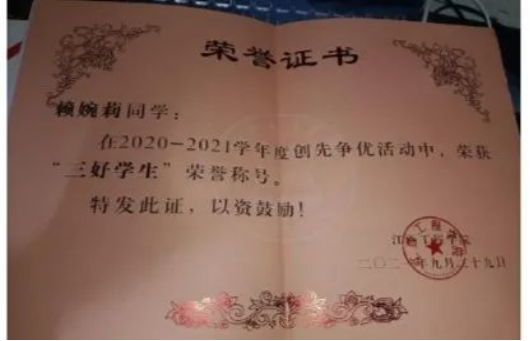 荣誉证书
赖婉莉同学：
在2020-2021学年度创先争优活动中，荣获
“三好学生”荣誉称号。
特发此证，以资鼓励！
江西工程学院
二〇二 年九月二十九日